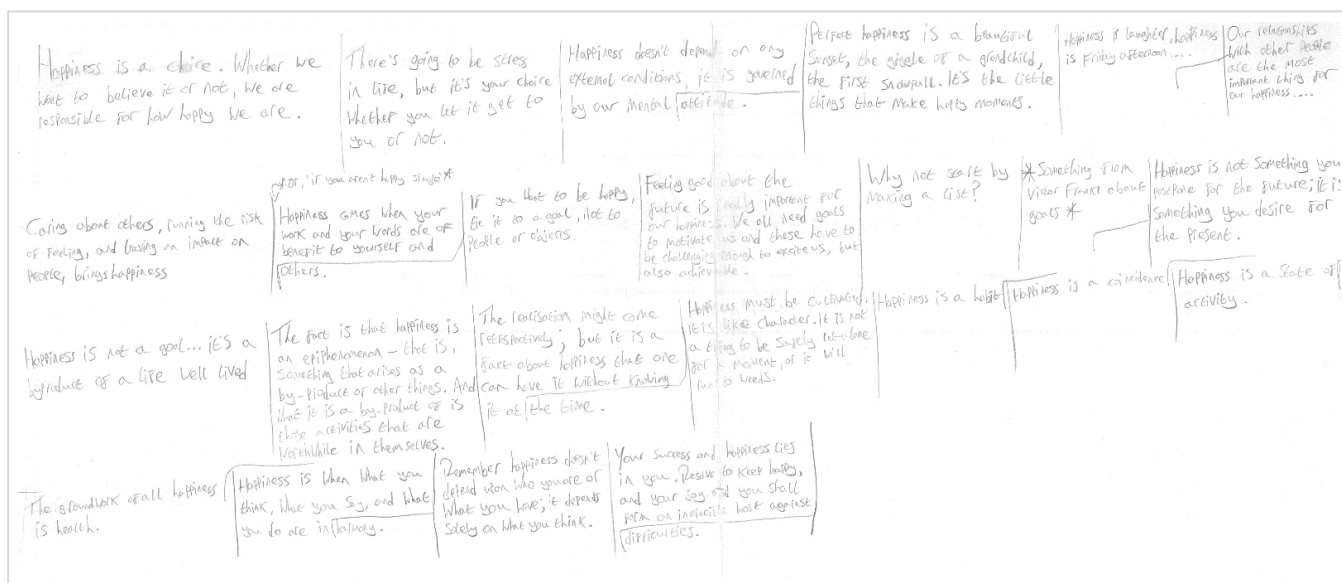 Happiness is a choice. Whether we
want to believe it or not, we are
responsible for how happy we are.
There's going to be stress
in life, but it's your choice
whether you let it get to
you or not.
Happiness doesn't depend on any
external conditions, it is governed
by our mental attitude.
Perfect happiness is a beautiful
sunset, the giggle of a grandchild,
the first snowfall. It's the little
things that make happy moments.
Happiness is laughter, happiness
is Friday afternoon....
Our relationships
with other people
are the most
important thing for
our happiness....
Caring about others, running the risk
of feeling, and leaving an impact on
people, brings happiness
*or, 'if you aren't happy single'*
Happiness comes when your
work and your words are of
benefit to yourself and
others.
If you want to be happy,
tie it to a goal, not to
people or objects
Feeling good about the
future is really important for
our happiness. We all need goals
to motivate us and these have to
be challenging enough to excite us, but
also achievable.
Why not start by
making a list?
*Something from
Victor Frankl about
goals*
Happiness is not something you
postpone for the future; it is
something you desire for
the present.
Happiness is not a goal... it's a
byproduct of a life well lived
The fact is that happiness is
an epiphenomenon – that is,
something that arises as a
by-product of other things. And
what it is a by-product of is
those activities that are
worthwhile in themselves.
The realisation might come
retrespectively; but it is a
fact about happiness that one
can have it without knowing
it at the time.
Happiness must be cultivated.
it is like character. it is not
a thing to be safely let alone
for a moment, or it will
run to weeds.
Happiness is a habit
Happiness is a coincidence
Happiness is a state of
activity.
The groundwork of all happiness
is health.
Happiness is when what you
think, what you say, and what
you do are in harmony.
Remember happiness doesn't
depend upon who you are or
what you have; it depends
solely on what you think.
Your success and happiness lies
in you. Resolve to keep happy,
and your joy and you shall
form an invincible host against
difficulties.